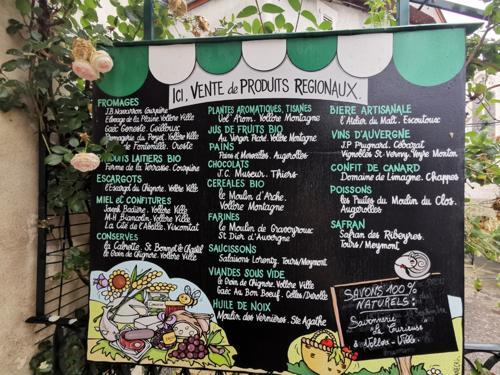 ICI, VENTE de PRODUITS REGIONAUX.
FROMAGES
J.B Navarron Courpière
Elevage de la Plaine. Vollore Ville
Gaec Geneste. Gaillouc
Fromagerie du Ponjet. Vollore Ville
le Fontenille. Orcste
PRODUITS LAITIERS BIO
Ferme de la Terrasse. Courpière
ESCARGOTS
l'Escargot du Chignore. Vollore Ville
MIEL et CONFITURES
Joseph Badière. Vollore Ville
M-H Brancolin. Vollore Ville
La Cité de l'Abeille. Viscomtat
CONSERVES
la Calorette. St Bonnet le Chastel
le Groin de Chignore. Vollore Ville
PLANTES AROMATIQUES, TISANES
Vol' Arom. Vollore Montagne
JUS DE FRUITS BIO
Au Verger Pressé. Vollore Montagne
PAINS
Pains et Merveilles. Augerolles
CHOCOLATS
J.C. Museur. Thiers
CEREALES BIO
le Moulin d'Arche.
Vollore Montagne
FARINES
le Moulin de Graveyroux
St Dier d'Auvergne
SAUCISSONS
Salaisons Lorenty. Tours/Meymont
VIANDES SOUS VIDE
le Groin de Chignore. Vollore Ville
Gaec Au Bon Boeuf. Celles/Durolle
HUILE DE NOIX
Moulin des Vernières. Ste Agathe
BIERE ARTISANALE
l'Atelier du Malt. Escoutoux
VINS D'AUVERGNE
J.P Prugnard. Cébazat
Vignobles St-Verny. Veyre Monton
CONFIT DE CANARD
Domaine de Limagne. Chappes
POISSONS
les Truites du Moulin du Clos.
Augerolles
SAFRAN
Safran des Ribeyres
Tours/Meymont
SAVONS 100%
NATURELS:
Savonnerie
la Curieuse
à Vollore-Ville